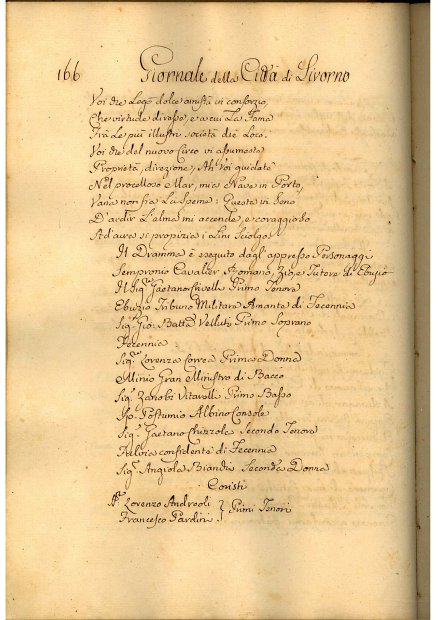 166 Giornale della Città di Livorno
Voi che Lega dolce amistà in consorzio,
Che virtude divosse, e a cui La Fama
Frà Le più illustri società diè Loco.
Voi che del nuovo Circo vi assumeste
Proprietà, direzione, Ah Voi guidate
Nel procelloso Mar, mia Nave in Porto,
Vana non fia La Speme: Questa in seno
D'ardir L'alma mi accende, e coraggioso
Ad aure sì propizie i Lini Sciolgo
Il Dramma è eseguito dagl'appresso Personaggi
Sempronio Cavalier Romano, Zio, e Tutore di Ebuzio
Il Sig.r Gaetano Crivelli Primo Tenore
Ebuzio Tribuno Militare Amante di Fecennia
Sig.r Gio: Batta Velluti Primo Soprano
Fecennia
Sig.ra Lorenza Correa Prima Donna
Minio Gran Ministro di Bacco
Sig.r Zanobi Vitarelli Primo Basso
Sp. Postumio Albino Console
Sig.r Gaetano Chizzola Secondo Tenore
Fulvia confidente di Fecennia
Sig.ra Angiola Bianchi Seconda Donna
Coristi
Lorenzo Andreoli } Primi Tenori
Francesco Pardini